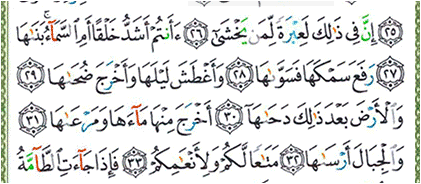 ٢٥ إِنَّ فِى ذَٰلِكَ لَعِبْرَةً لِّمَن يَخْشَىٰٓ ٢٦ ءَأَنتُمْ أَشَدُّ خَلْقًا أَمِ ٱلسَّمَآءُ ۚ بَنَىٰهَا
٢٧ رَفَعَ سَمْكَهَا فَسَوَّىٰهَا ٢٨ وَأَغْطَشَ لَيْلَهَا وَأَخْرَجَ ضُحَىٰهَا ٢٩
وَٱلْأَرْضَ بَعْدَ ذَٰلِكَ دَحَىٰهَآ ٣٠ أَخْرَجَ مِنْهَا مَآءَهَا وَمَرْعَىٰهَا ٣١
وَٱلْجِبَالَ أَرْسَىٰهَا ٣٢ مَتَٰعًا لَّكُمْ وَلِأَنْعَٰمِكُمْ ٣٣ فَإِذَا جَآءَتِ ٱلطَّآمَّةُ